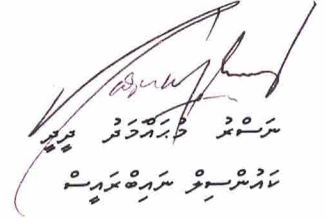 ނަސްރު މުޙައްމަދު ދީދީ
ކައުންސިލް ނައިބްރައީސް